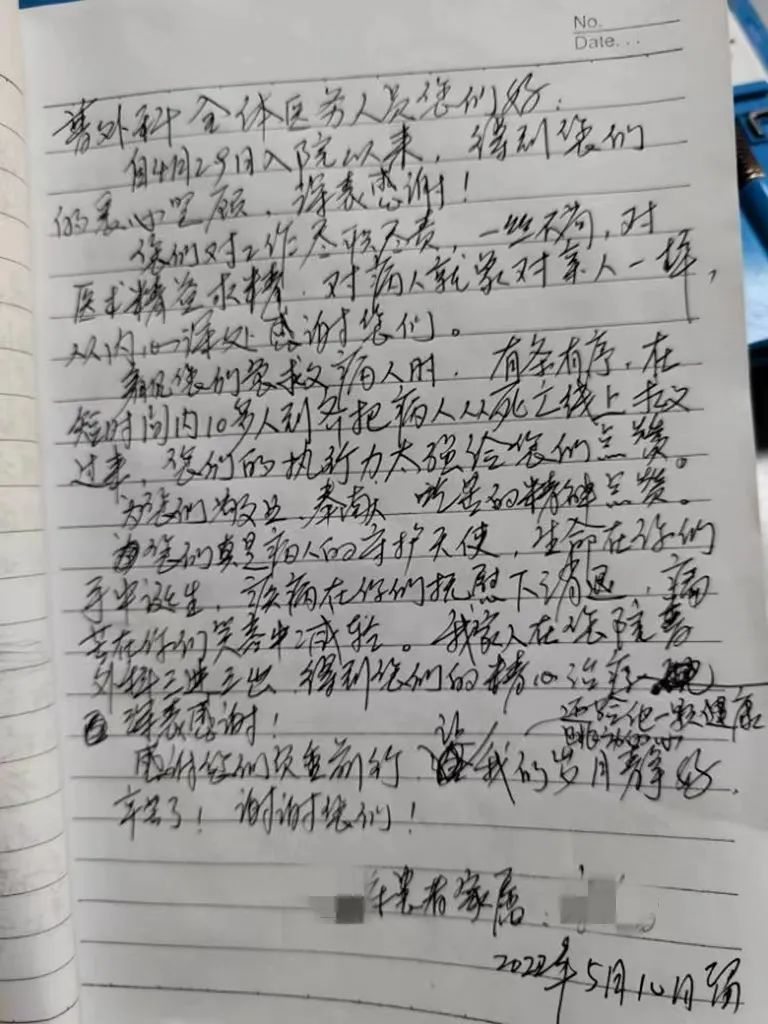 No.
Date...
普外科全体医务人员您们好:
自4月29日入院以来,得到您们
的悉心照顾,深表感谢!
您们对工作尽职尽责,一丝不苟,对
医术精益求精,对病人就象对亲人一样,
从内心深处感谢您们。
亲见您们抢救病人时,有条有序,在
短时间内10多人到齐把病人从死亡线上救
过来,您们的执行力太强给您们点赞。
为您们敬业、奉献的精神点赞。
您们真是病人的守护天使,生命在你们
手中诞生,疾病在你们抚慰下消退,痛
苦在你们笑容中减轻。我家人在您院普
外科三进三出,得到您们的精心治疗
还给他一颗健康
跳动的心
深表感谢!
感谢您们负重前行,让我的岁月静好,
辛苦了!谢谢您们!
患者家属:
2022年5月10日